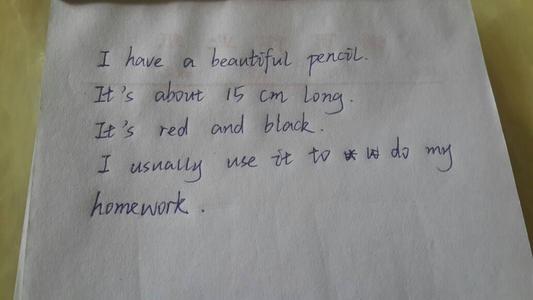 I have a beautiful pencil.
It's about 15 cm long.
It's red and black.
I usually use it to do my
homework.